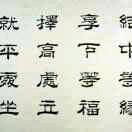 結中等緣
享下等福
擇高處立
就平處坐